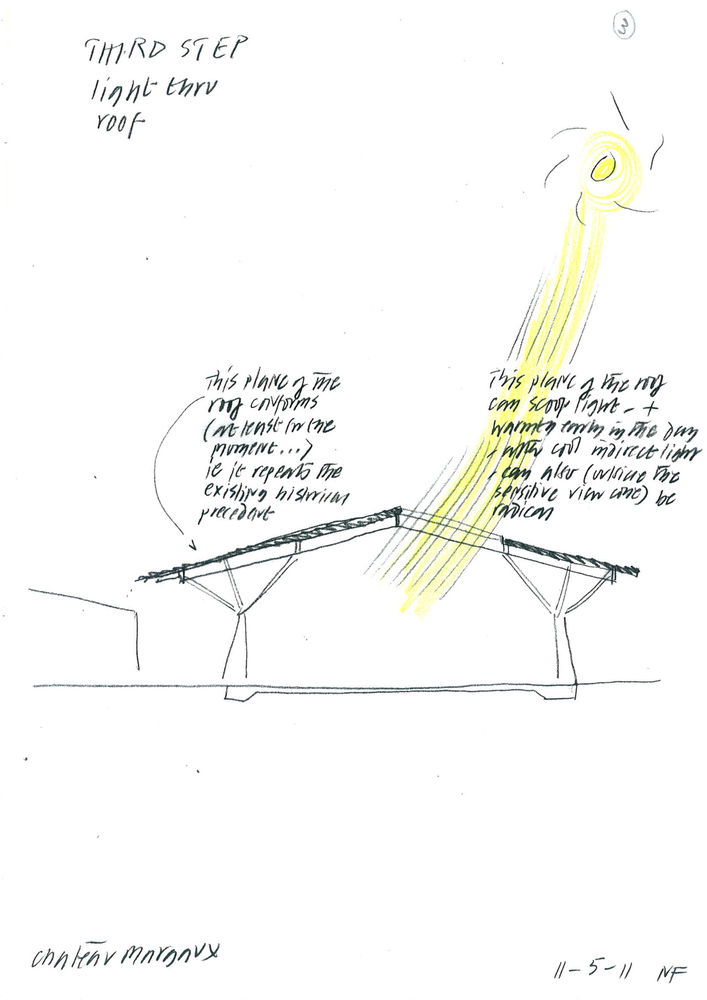 3
THIRD STEP
light thru
roof
This plane of the
roof conforms
(at least for the
moment...)
ie it repeats the
existing historical
precedent
This plane of the roof
can scoop light - +
warmth early in the day
- with cool indirect light
- can also (outside the
sensitive view cone) be
radical
chatēau margaux
11-5-11 NF